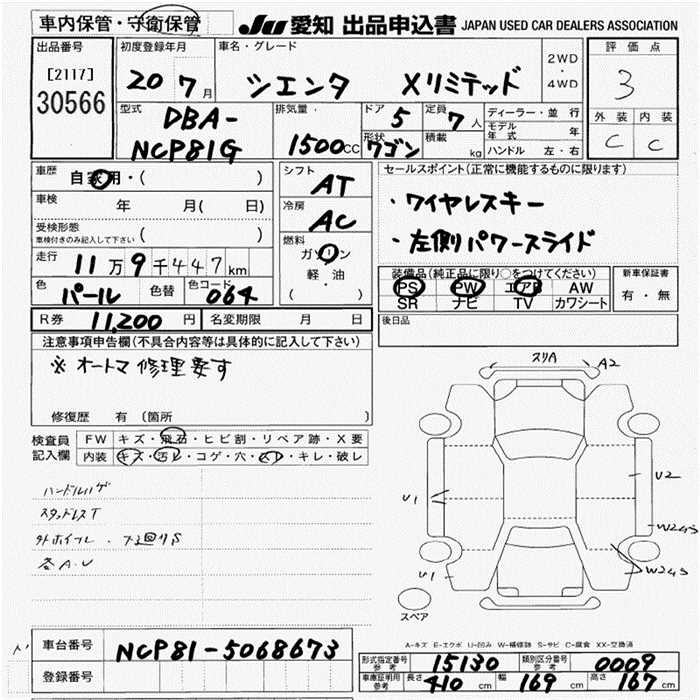 車内保管・守衛保管
JU 愛知 出品申込書 JAPAN USED CAR DEALERS ASSOCIATION
出品番号 初度登録年月 車名・グレード 評価点
[2117] 30566
20 7月 シエンタ Xリミテッド 2WD・4WD 3
型式 DBA-NCP81G 排気量 1500cc ドア 5 定員 7人 ディーラー・並行 外装 内装
形状 ワゴン 積載 kg モデル年式 年 C C
ハンドル 左・右
車歴 自家用・( ) シフト AT セールスポイント(正常に機能するものに限ります)
車検 年 月( 日) 冷房 AC ・ワイヤレスキー
受検形態 車検付きのみ記入して下さい ( ) 燃料 ガソリン ・左側パワースライド
走行 11万9千447km 軽・油 装備品(純正品に限り○をつけてください) 新車保証書
色 パール 色替 色コード 064 ( ) PS PW エアB AW 有・無
SR ナビ TV カワシート
R券 11,200円 名変期限 月 日 後日品
注意事項申告欄(不具合内容等は具体的に記入して下さい)
※オートマ修理要す
修復歴 有(箇所 )
検査員記入欄 FW キズ・飛石・ヒビ割・リペア跡・X要
内装 キズ・汚レ・コゲ・穴・スレ・キレ・破レ
ハンドルハゲ
スタッドレスT
外ホイール
各A.U
スリA A2
U1 U2
W2 U1 W2
スペア
A-キズ E-エクボ U-凹み W-補修跡 S-サビ C-腐食 XX-交換済
車台番号 NCP81-5068673
登録番号
形式指定番号 参考 15130 類別区分番号 参考 0009
車庫証明用 参考 長さ 410cm 幅 169cm 高さ 167cm